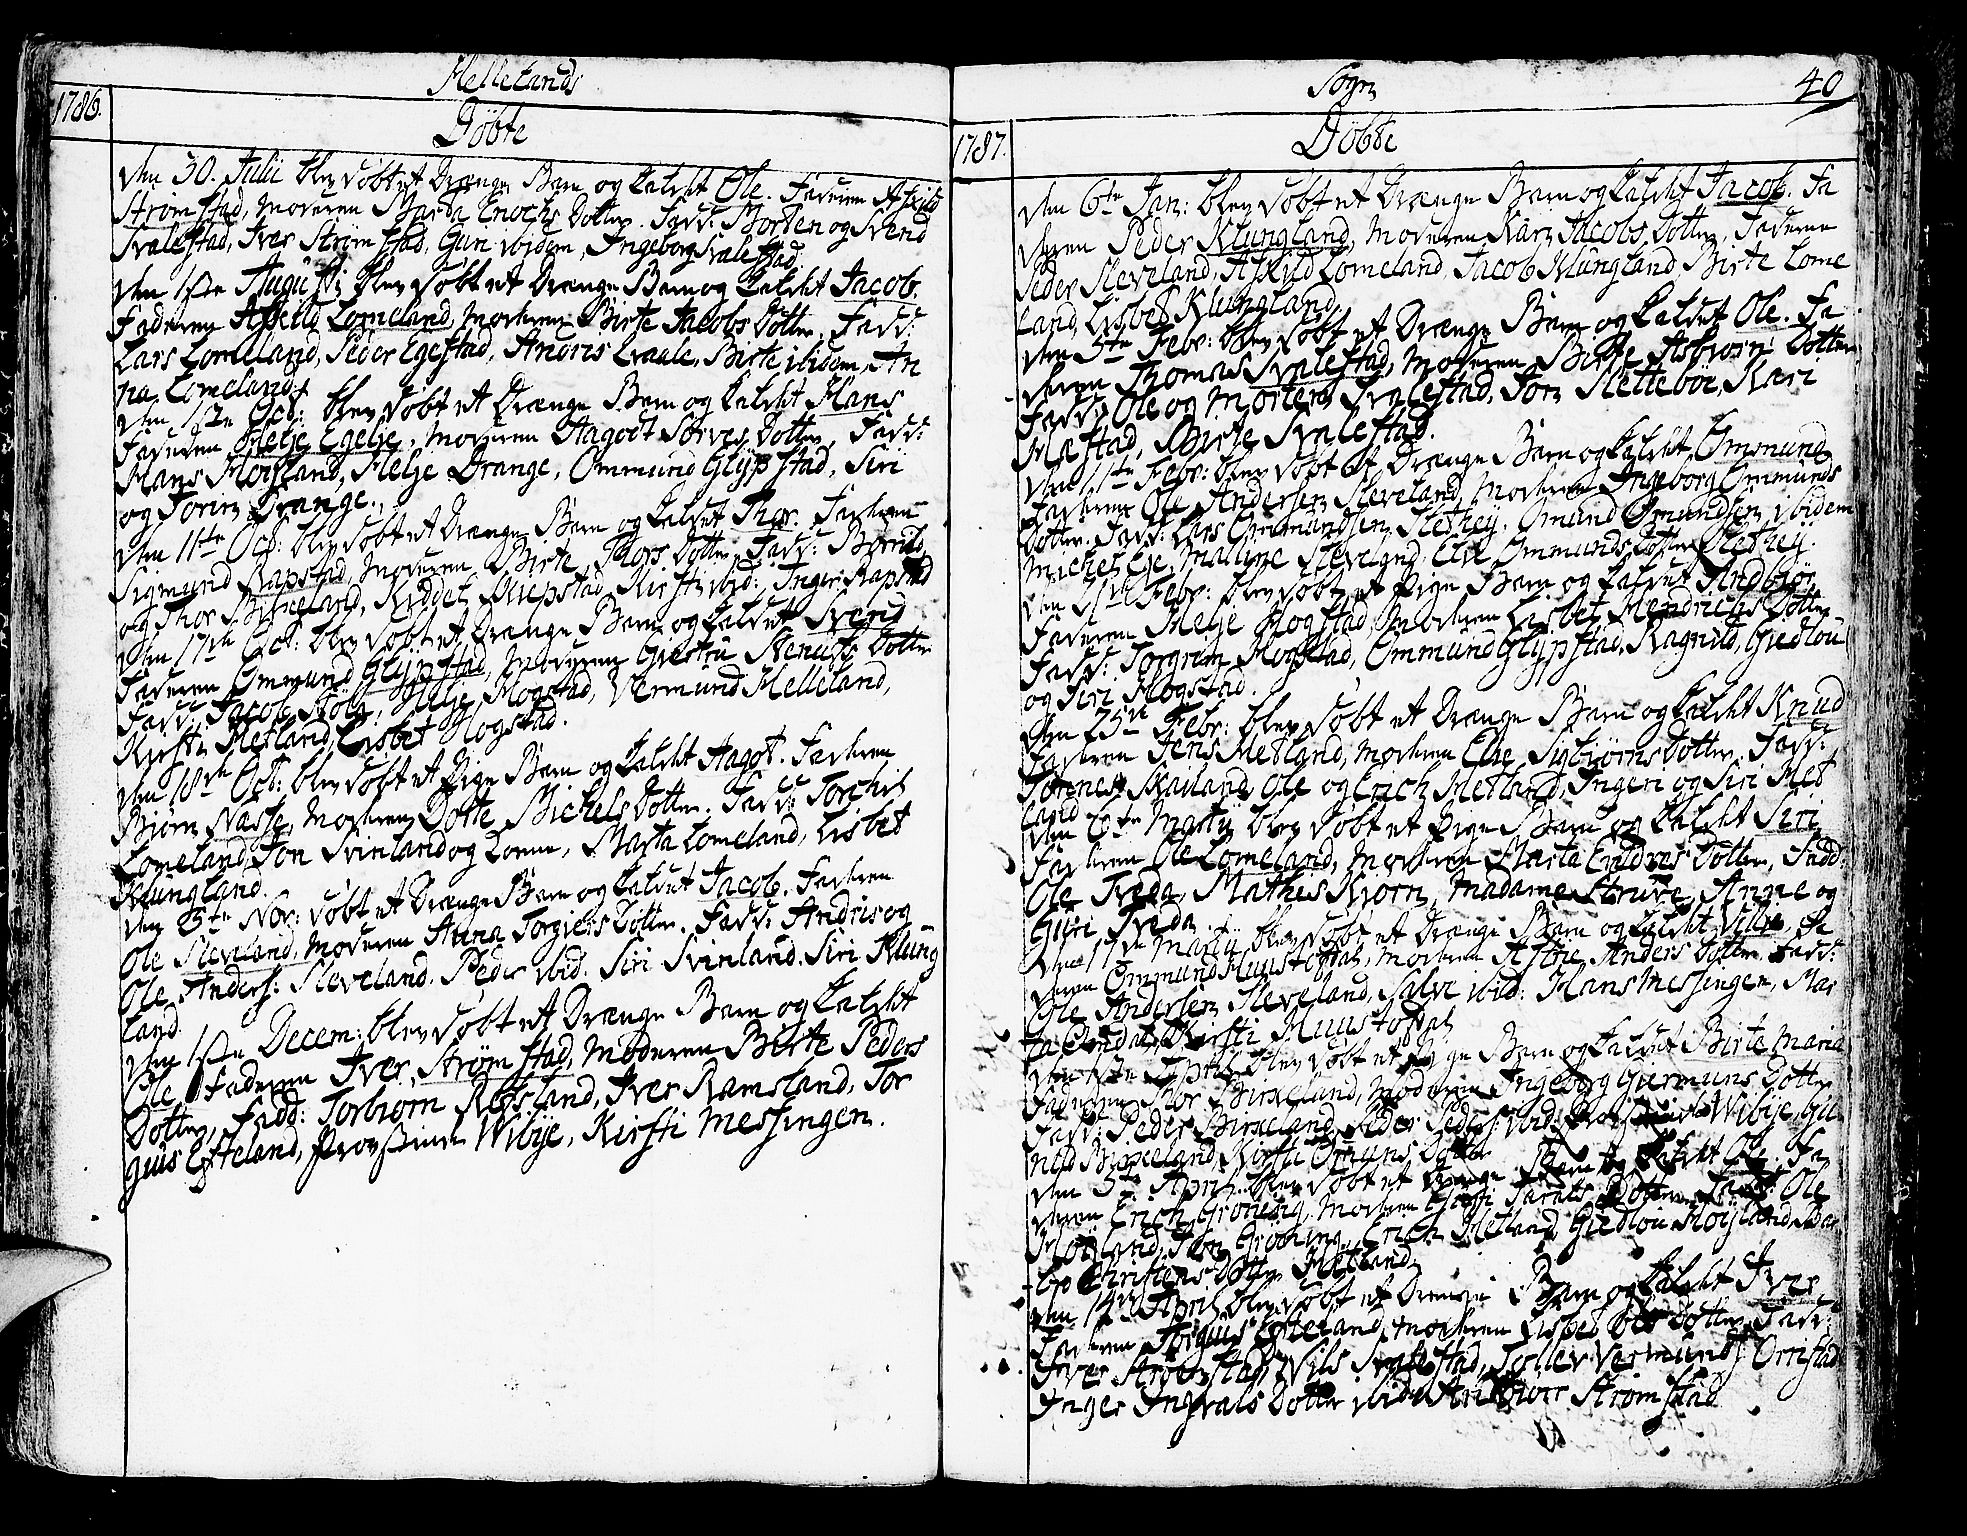 Hellelands
1786.
Döbte
den 30. Julii blev döbt et Drænge Barn og kaldet Ole. Faderen Askild
Strömstad, Moderen Marta Enochs Dotter. Fadd: Morten og Svend
Svalestad, Iver Strömstad, Guri ibidem, Ingeborg Svalestad.
den 1ste Augusti blev döbt et Drænge Barn og kaldet Jacob.
Faderen Askild Lomeland, Moderen Birte Jacobs Dotter. Fadd:
Lars Lomeland, Peder Egestad, Andres Evaale, Birte ibidem, An
na Lomeland.
den 1ste Oct: blev döbt et Drænge Barn og kaldet Hans
Faderen Helje Egelje, Moderen Aagodt Sörves Dotter, Fadd:
Hans Moisland, Helje Drange, Ommund Glypstad, Siri
og Torin Drange.
den 11te Oct: blev döbt et Drænge Barn og kaldet Thor. Faderen
Sigmund Rapstad, Moderen Birte Thors Dotter, Fadd:
og Thor Birkeland, Kiddel Rapstad, Kirsti ibid: Inger Rapstad
den 17de Oct: blev döbt et Drænge Barn og kaldet Svend
Faderen Ommund Glypstad, Moderen Giertru Stenuls Dotter
Fadd: Jacob Stöle, Helje Hogstad, Vermund Helleland,
Kirsti Netland, Lisbet Hogstad.
den 18de Oct: blev döbt et Pige Barn og kaldet Aagot. Faderen
Björn Nasse, Moderen Dotte Michels Dotter. Fadd: Torchil
Lomeland, Jon Svinland og, Marta Lomeland, Lisbet
Klungland.
den 5te Nov: döbt et Drænge Barn og kaldet Jacob. Faderen
Ole Sleveland, Moderen Anna Torgiers Dotter. Fadd: Andris og
Ole Anders: Sleveland. Peder ibid. Siri Svinland. Siri Klung
land.
den 1ste Decem: blev döbt et Drænge Barn og kaldet
Ole. Faderen Iver Strömstad, Moderen Birte Peders
Dotter, Fadd: Torbiorn Rosland, Iver Ramsland, Tor
guis Efteland, Provstinde Wibye, Kirsti Messingen.
Sogn
40
1787.
Döbte
den 6te Jan: blev döbt et Drænge Barn og kaldet Jacob. Fa
deren Peder Klungland, Moderen Kari Jacobs Dotter, Fadderne
Peder Sleveland, Askild Lomeland, Jacob Klungland, Birte Lome
land, Lisbet Klungland.
den 5te Febr: blev döbt et Drænge Barn og kaldet Ole. Fa
deren Thomas Svalestad, Moderen Birte Asbiorn Dotter
Fadd: Ole og Morten Svalestad, Jon Sletteböe, Kari
Mastad, Birte Svalestad.
den 11te Febr: blev döbt et Drænge Barn og kaldet Ommund
Faderen Ole Andersen Sleveland, Moderen Ingeborg Ommunds
Dotter. Fadd: Lars Ommundsen Slethey. Omund Omundsen ibidem
Michel Eje, Maline Sleveland, Else Ommunds Dotter Slethey.
den 21de Febr: blev döbt et Pige Barn og kaldet Andbiör
Faderen Helje Hogstad, Moderen Lisbet Hendrichs Dotter
Fadd: Torgrim Hogstad, Ommund Glypstad, Ragnild, Giedlou
og Siri Hogstad.
den 25de Febr: blev döbt et Drænge Barn og kaldet Knud
Faderen Jens Netland, Moderen Else Sigbiörns Dotter, Fadd:
Tönnes Skailand, Ole og Erich Netland, Ingeri og Siri Net
land
den 6te Martij blev döbt et Pige Barn og kaldet Siri
Faderen Ole Lomeland, Moderen Marta Endres Dotter, Fadd
Ole Tveda, Mathes Kiorn, Madame Struve, Anne og
Guri Tveda.
den 17de Martij blev döbt et Drænge Barn og kaldet Villu. Fa
deren Ommund, Moderen Anders Dotter, Fadd:
Ole Andersen Sleveland, Salve ibid: Hans Messingen, Mar
ta, Kirsti
den 1ste April blev döbt et Pige Barn og kaldet Birte Maria
Faderen Thor Birkeland, Moderen Ingeborg Giermuns Dotter
Fadd: Peder Birkeland, Peder Peders: ibid: Provstinde Wibye, Gu
nild Birkeland, Kirsti Omuns Dotter
den 5te April blev döbt et Drænge Barn og kaldet Ole. Fa
deren Erich Gröning, Moderen Taralds Dotter, Fadd: Ole
Jon Gröning, Erich Netland, Giedlou
Christens Dotter Netland.
den 14de April blev döbt et Drænge Barn og kaldet Iver
Faderen Torguis Efteland, Moderen Lisbet Ols Dotter, Fadd:
Iver Strömstad, Nils Svalestad, Tollev Vermunds: Orrestad
Inger Ingvals Dotter ibid: Strömstad